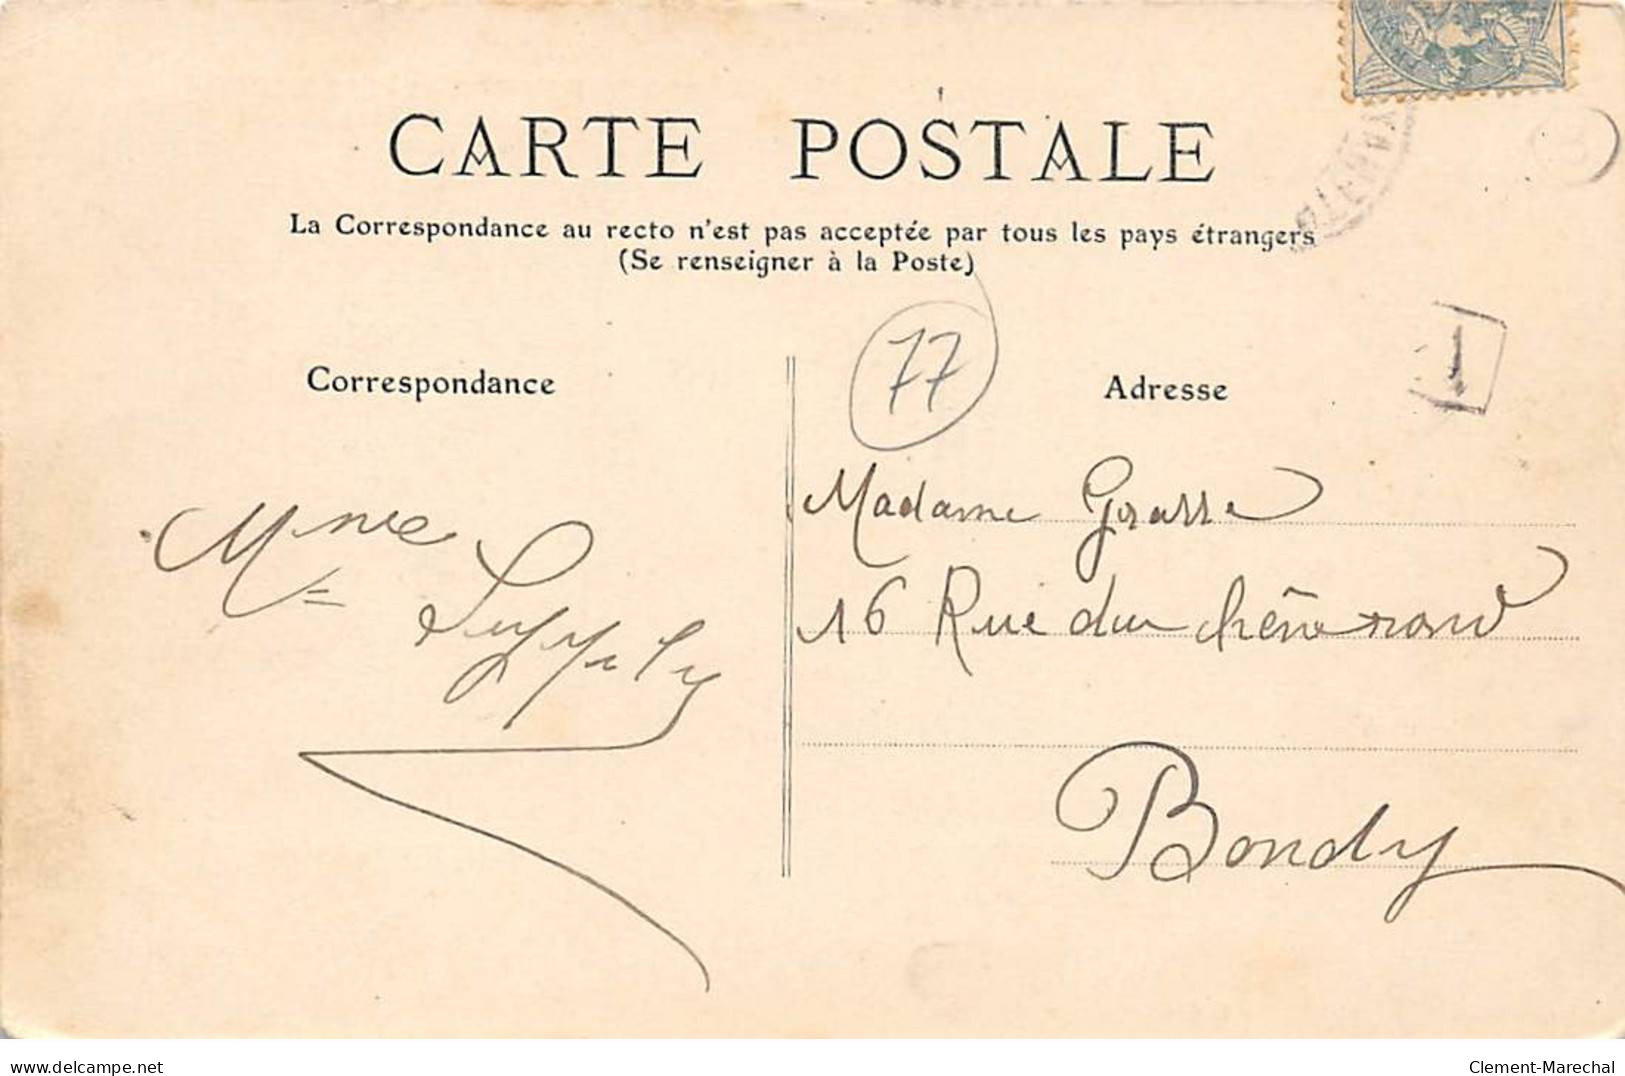 CARTE POSTALE
La Correspondance au recto n'est pas acceptée par tous les pays étrangers
(Se renseigner à la Poste)
77
Correspondance
Adresse
1
Mme
Madame Grasse
16 Rue du chêne rond
Bondy
delcampe.net
Clement-Marechal